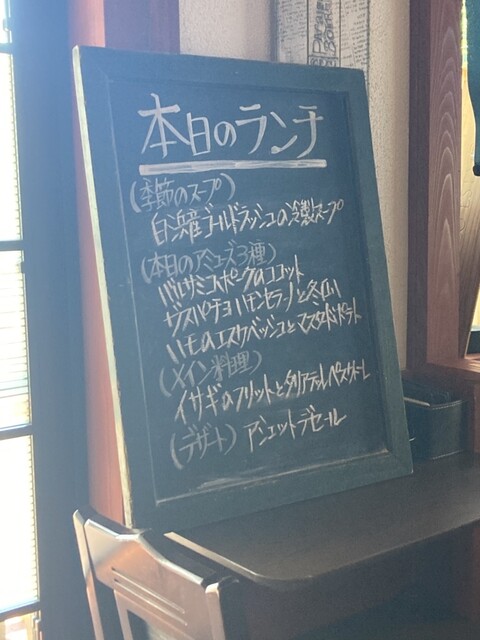 本日のランチ
(季節のスープ)
白浜産ゴールドラッシュの冷製スープ
(本日のアミューズ3種)
バルサミコポークのココット
ガスパチョハモンセラーノと冬瓜
ハモのエスカベッシュとマスタードポテト
(メイン料理)
イサギのフリットとタリアテッレペスカトーレ
(デザート) アシェットデセール